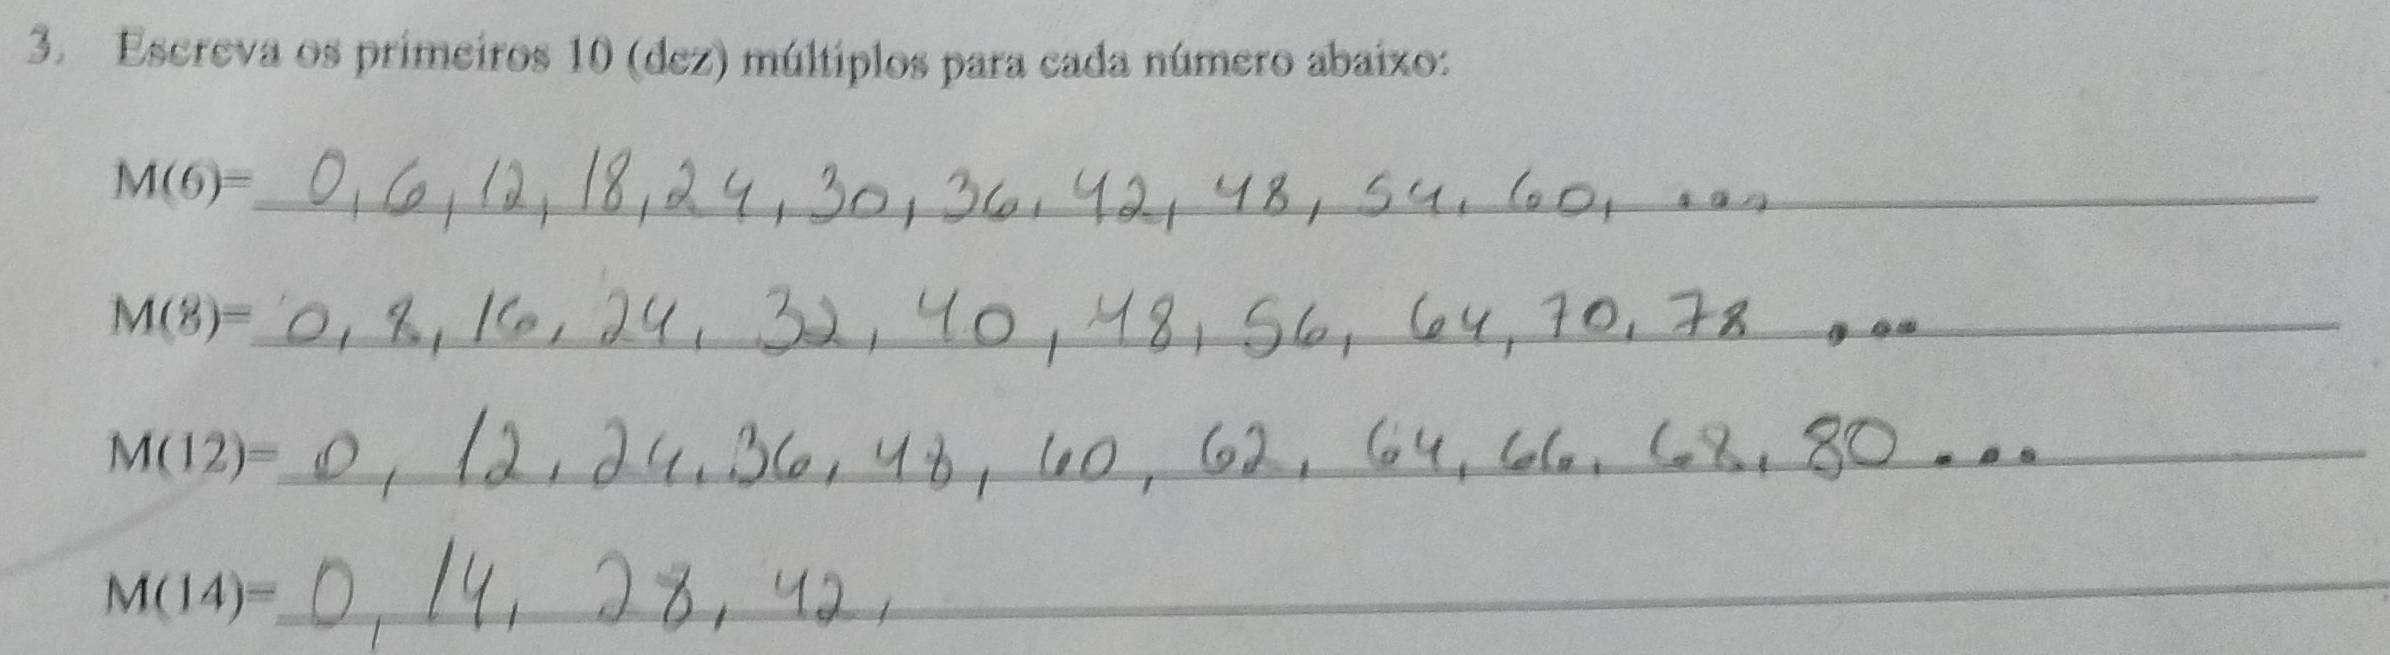 3. Escreva os primeiros 10 (dez) múltiplos para cada número abaixo:
M(6)= 0, 6, 12, 18, 24, 30, 36, 42, 48, 54, 60, ...
M(8)= 0, 8, 16, 24, 32, 40, 48, 56, 64, 70, 78 ...
M(12)= 0, 12, 24, 36, 48, 60, 62, 64, 66, 68, 80 ...
M(14)= 0, 14, 28, 42,